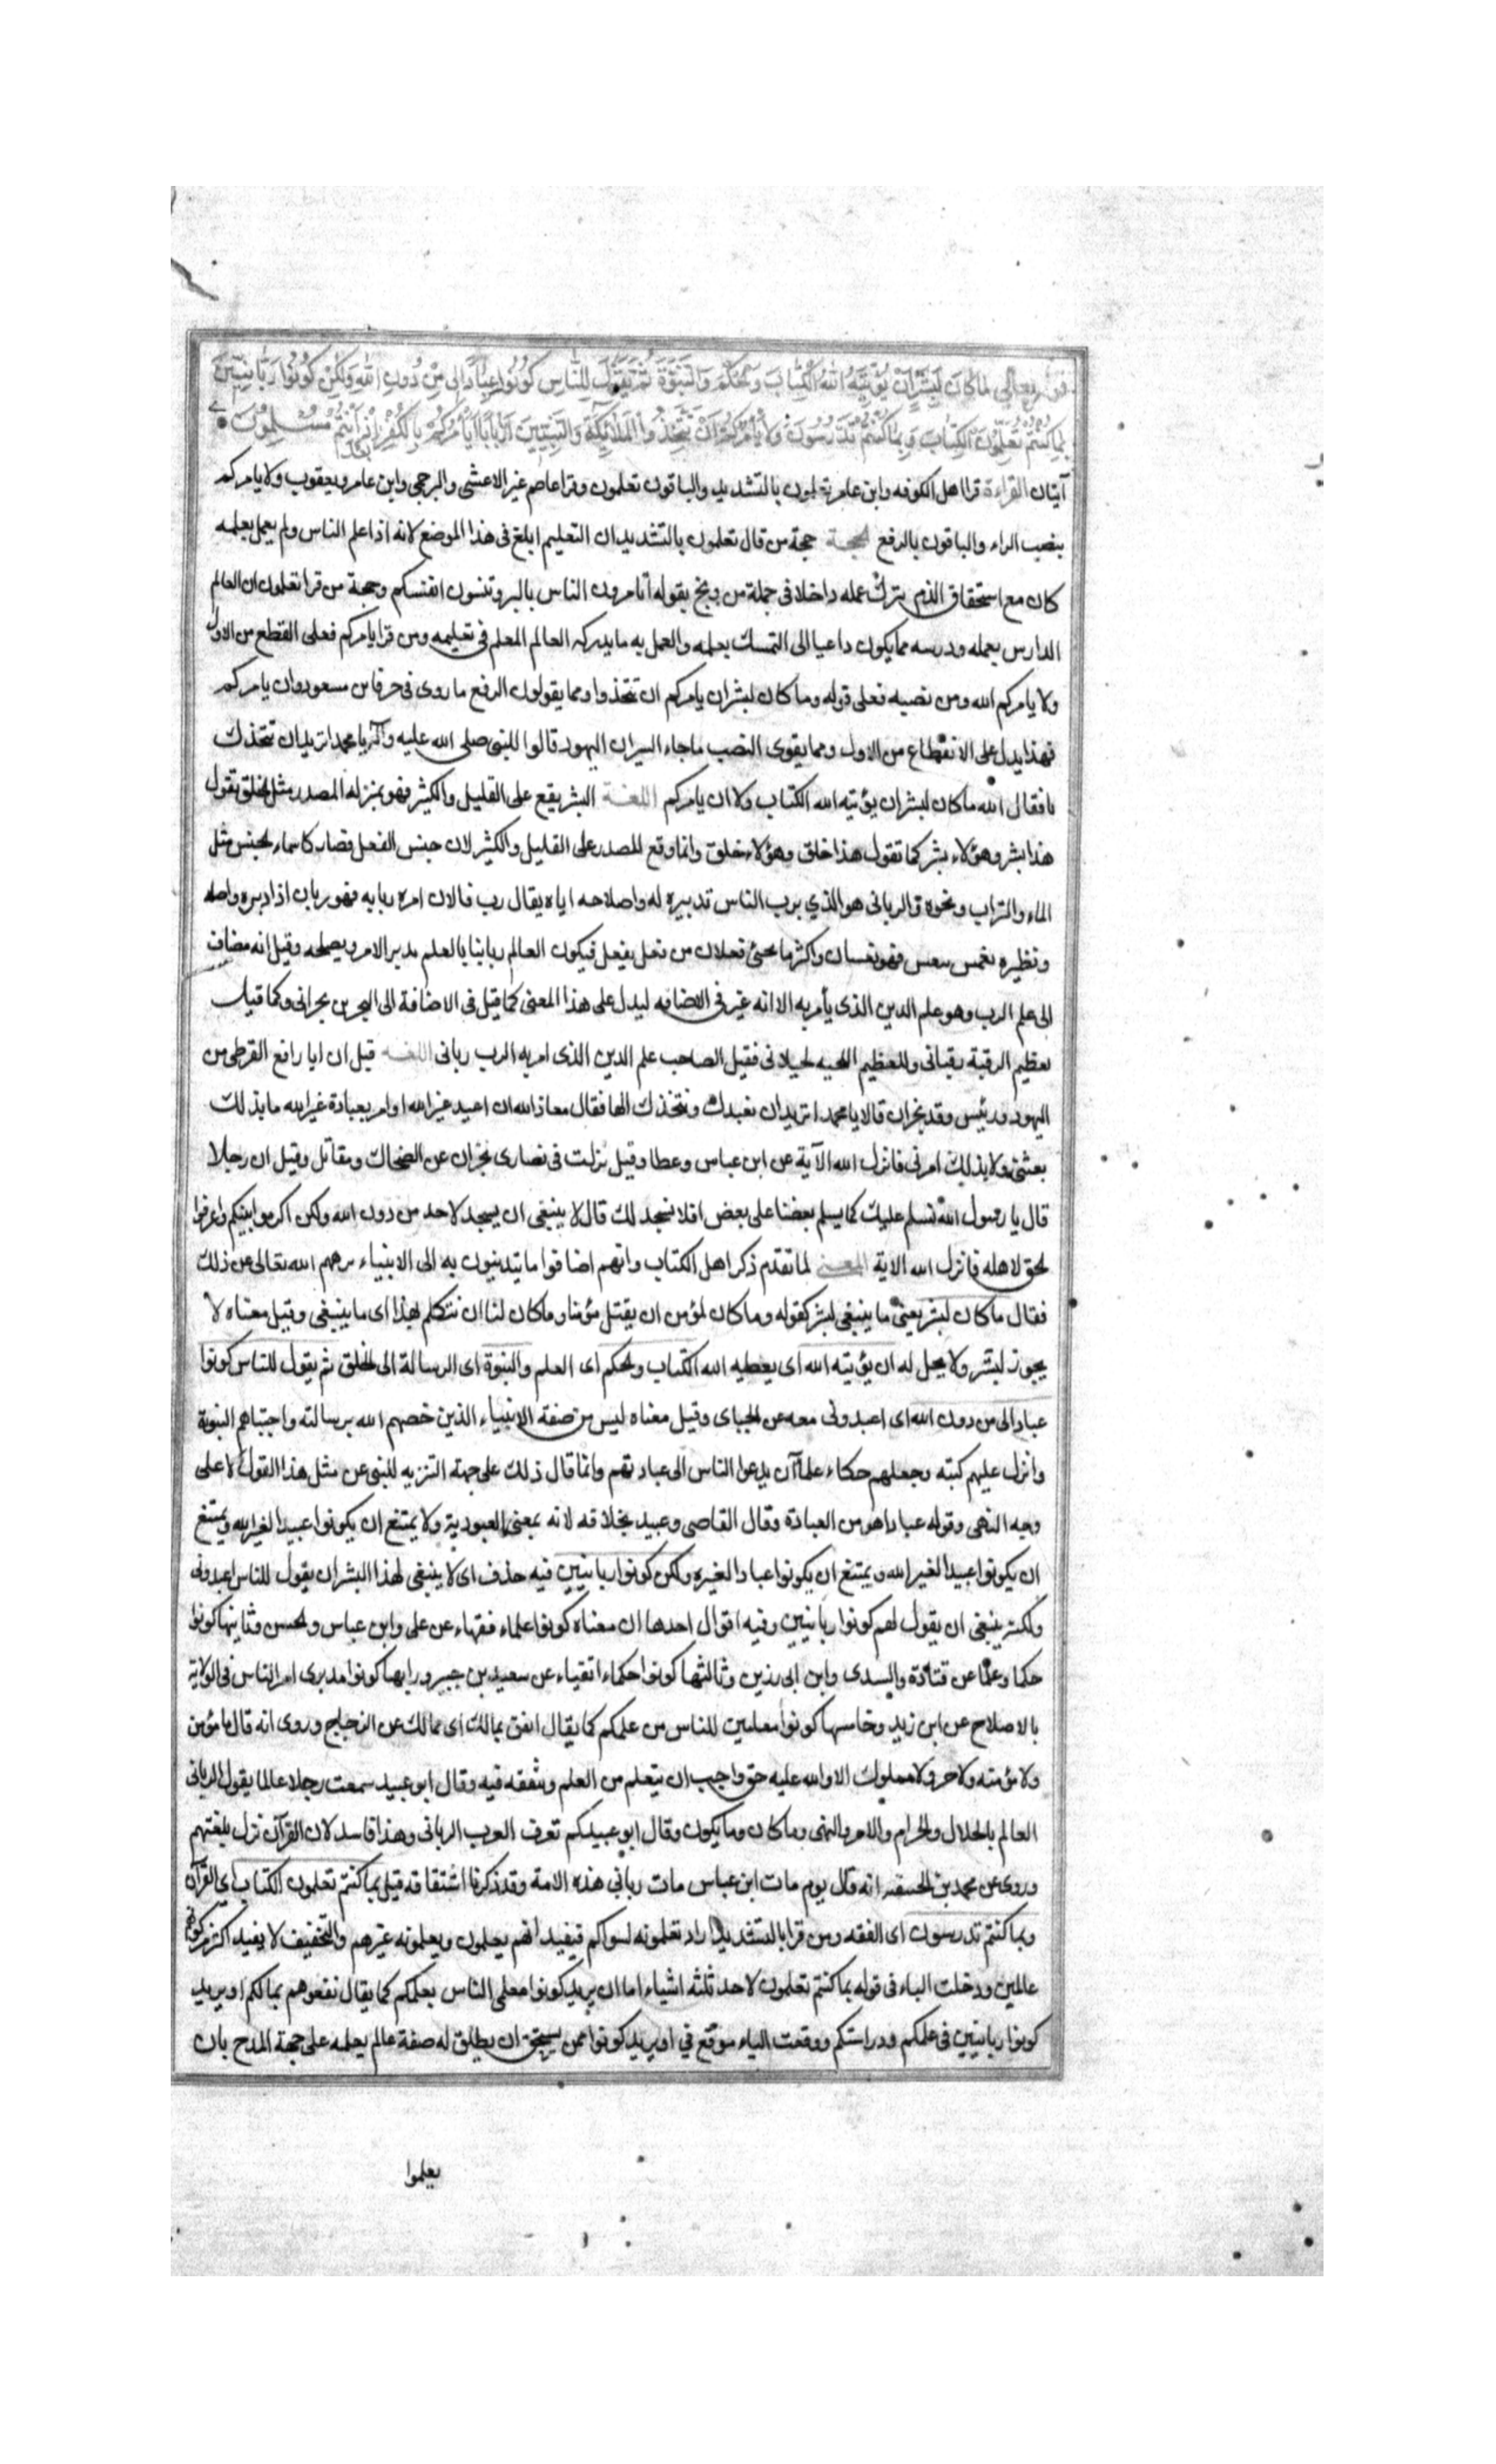 قوله تعالى مَا كَانَ لِبَشَرٍ اَنْ يُؤْتِيَهُ اللهُ الْكِتَابَ وَالْحُكْمَ وَالنُّبُوَّةَ ثُمَّ يَقُولَ لِلنَّاسِ كُونُوا عِبَادًا لِي مِنْ دُونِ اللهِ وَلٰكِنْ كُونُوا رَبَّانِيِّينَ
بِمَا كُنْتُمْ تُعَلِّمُونَ الْكِتَابَ وَبِمَا كُنْتُمْ تَدْرُسُونَ وَلَا يَأْمُرَكُمْ اَنْ تَتَّخِذُوا الْمَلَائِكَةَ وَالنَّبِيِّينَ اَرْبَابًا اَيَأْمُرُكُمْ بِالْكُفْرِ بَعْدَ اِذْ اَنْتُمْ مُسْلِمُونَ
آيتان القراءة قرا اهل الكوفه وابن عامر تعلمون بالتشديد والباقون تعلمون وقرا عاصم غير الاعشى والبرجمى وابن عامر ويعقوب ولا يامركم
بنصب الراء والباقون بالرفع الحجة حجة من قال تعلمون بالتشديد ان التعليم ابلغ فى هذا الموضع لانه اذا علم الناس ولم يعمل بعلمه
كان مع استحقاق الذم بترك عمله داخلا فى جملة من وبخ بقوله اتامرون الناس بالبر وتنسون انفسكم وحجة من قرا تعلمون ان العالم
الدارس بعمله ودرسه مما يكون داعيا الى التمسك بعلمه والعمل به ما يدركه العالم المعلم فى تعليمه ومن قرا يامركم فعلى القطع من الاول
ولا يامركم الله ومن نصبه فعلى قوله وما كان لبشر ان يامركم ان تتخذوا ومما يقولون الرفع ما روى فى حرف ابن مسعود وان يامركم
فهذا يدل على الانقطاع من الاول ومما يقوى النصب ما جاء السير ان اليهود قالوا للنبى صلى الله عليه وآله يا محمد اتريد ان نتخذك
ربا فقال الله ما كان لبشر ان يؤتيه الله الكتاب ولا ان يامركم اللغة البشر يقع على القليل والكثير فهو بمنزله المصدر مثل الخلق تقول
هذا بشر وهؤلاء بشر كما تقول هذا خلق وهؤلاء خلق وانما وقع المصدر على القليل والكثير لان جنس الفعل فصار كاسماء الجنس مثل
الماء والتراب ونحوه والربانى هو الذي يرب الناس تدبيره له واصلاحه اياه يقال رب فلان امره ربابه فهو ربان اذا دبره واصلحه
ونظيره نعس ينعس فهو نعسان واكثر ما يجئ فعلان من فعل يفعل فيكون العالم ربانيا بالعلم مدبر الامر ويصلحه وقيل انه مضاف
الى علم الرب وهو علم الدين الذى يأمر به الا انه غير فى الاضافه ليدل على هذا المعنى كما قيل فى الاضافة الى البحرين بحرانى وكما قيل
لعظيم الرقبة رقبانى وللعظيم اللحيه لحيانى فقيل لصاحب علم الدين الذى امر به الرب ربانى اللغـه قيل ان ابا رافع القرظى من
اليهود ورئيس وفد نجران قالا يا محمد اتريد ان نعبدك ونتخذك الها فقال معاذ الله ان اعبد غير الله او امر بعبادة غير الله ما بذلك
بعثنى ولا بذلك امرنى فانزل الله الآية عن ابن عباس وعطا وقيل نزلت فى نصارى نجران عن الضحاك ومقاتل وقيل ان رجلا
قال يا رسول الله نسلم عليك كما يسلم بعضنا على بعض افلا نسجد لك قال لا ينبغى ان يسجد لاحد من دون الله ولكن اكرموا نبيكم واعرفوا
الحق لاهله فانزل الله الاية المعنى لما تقدم ذكر اهل الكتاب وانهم اضافوا ما يتدينون به الى الانبياء نزههم الله تعالى عن ذلك
فقال ما كان لبشر يعنى ما ينبغى لبشر كقوله وما كان لمؤمن ان يقتل مؤمنا وما كان لنا ان نتكلم بهذا اى ما ينبغى وقيل معناه لا
يجوز لبشر ولا يحل له ان يؤتيه الله اى يعطيه الله الكتاب والحكم اى العلم والنبوة اى الرسالة الى الخلق ثم يقول للناس كونوا
عبادا لى من دون الله اى اعبدونى معه عن الجباى وقيل معناه ليس من صفة الانبياء الذين خصهم الله برسالته واجتباهم النبوة
وانزل عليهم كتبه وجعلهم حكماء علماء ان يدعوا الناس الى عبادتهم وانما قال ذلك على جهة التنزيه للنبى عن مثل هذا القول لا على
وجه النهى وقوله عبادا هو من العبادة وقال القاصى وعبيد بخلافه لانه بمعنى العبودية ولا يمتنع ان يكونوا عبيدا لغير الله ويمتنع
ان يكونوا عبيدا لغير الله ويمتنع ان يكونوا عبادا لغيره ولكن كونوا ربانيين فيه حذف اى لا ينبغى لهذا البشر ان يقول للناس اعبدونى
ولكن ينبغى ان يقول لهم كونوا ربانيين وفيه اقوال احدها ان معناه كونوا علماء فقهاء عن على وابن عباس والحسن وثانيها كونوا
حكما وعلما عن قتادة والسدى وابن ابى رزين وثالثها كونوا حكماء اتقياء عن سعيد بن جبير ورابعها كونوا مدبرى امر الناس فى الولاية
بالاصلاح عن ابن زيد وخامسها كونوا معلمين للناس من علمكم كما يقال انفق بمالك اى مالك عن الزجاج وروى انه قال ما مؤمن
ولا مؤمنه ولا حر ولا مملوك الا ولله عليه حق واجب ان يتعلم من العلم ويتفقه فيه وقال ابو عبيد سمعت رجلا عالما يقول الربانى
العالم بالحلال والحرام والامر والنهى وما كان وما يكون وقال ابو عبيد لم تعرف العرب الربانى وهذا فاسد لان القرآن نزل بلغتهم
وروى عن محمد بن الحنفيه انه قال يوم مات ابن عباس مات رباني هذه الامة وقد ذكرنا اشتقاقه قيل بما كنتم تعلمون الكتاب اى القرآن
وبما كنتم تدرسون اى الفقه ومن قرا بالتشديد اراد تعلمونه لسواكم فيفيد انهم يعلمون ويعلمونه غيرهم والتخفيف لا يفيد اكثر من كونهم
عالمين ودخلت الباء فى قوله بما كنتم تعلمون لاحد ثلثه اشياء اما ان يريد كونوا معلمى الناس بعلمكم كما يقال نفعوهم بمالكم او يريد
كونوا ربانيين فى علمكم ودراستكم ووقعت الباء موقع في او يريد كونوا ممن يستحق ان يطلق له صفة عالم بعلمه على جهة المدح بان
يعلموا